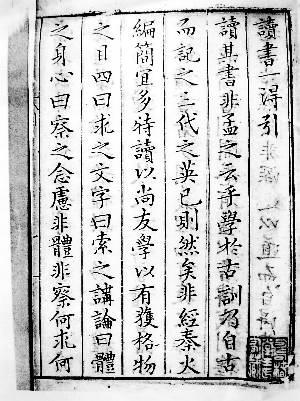 讀書一得引
讀其書非孟之云乎學於古訓乃自古
而記之三代之英已則然矣非經秦火
編簡宜多特讀以尚友學以有獲格物
之目四曰求之文字曰索之講論曰體
之身心曰察之念慮非體非察何求何